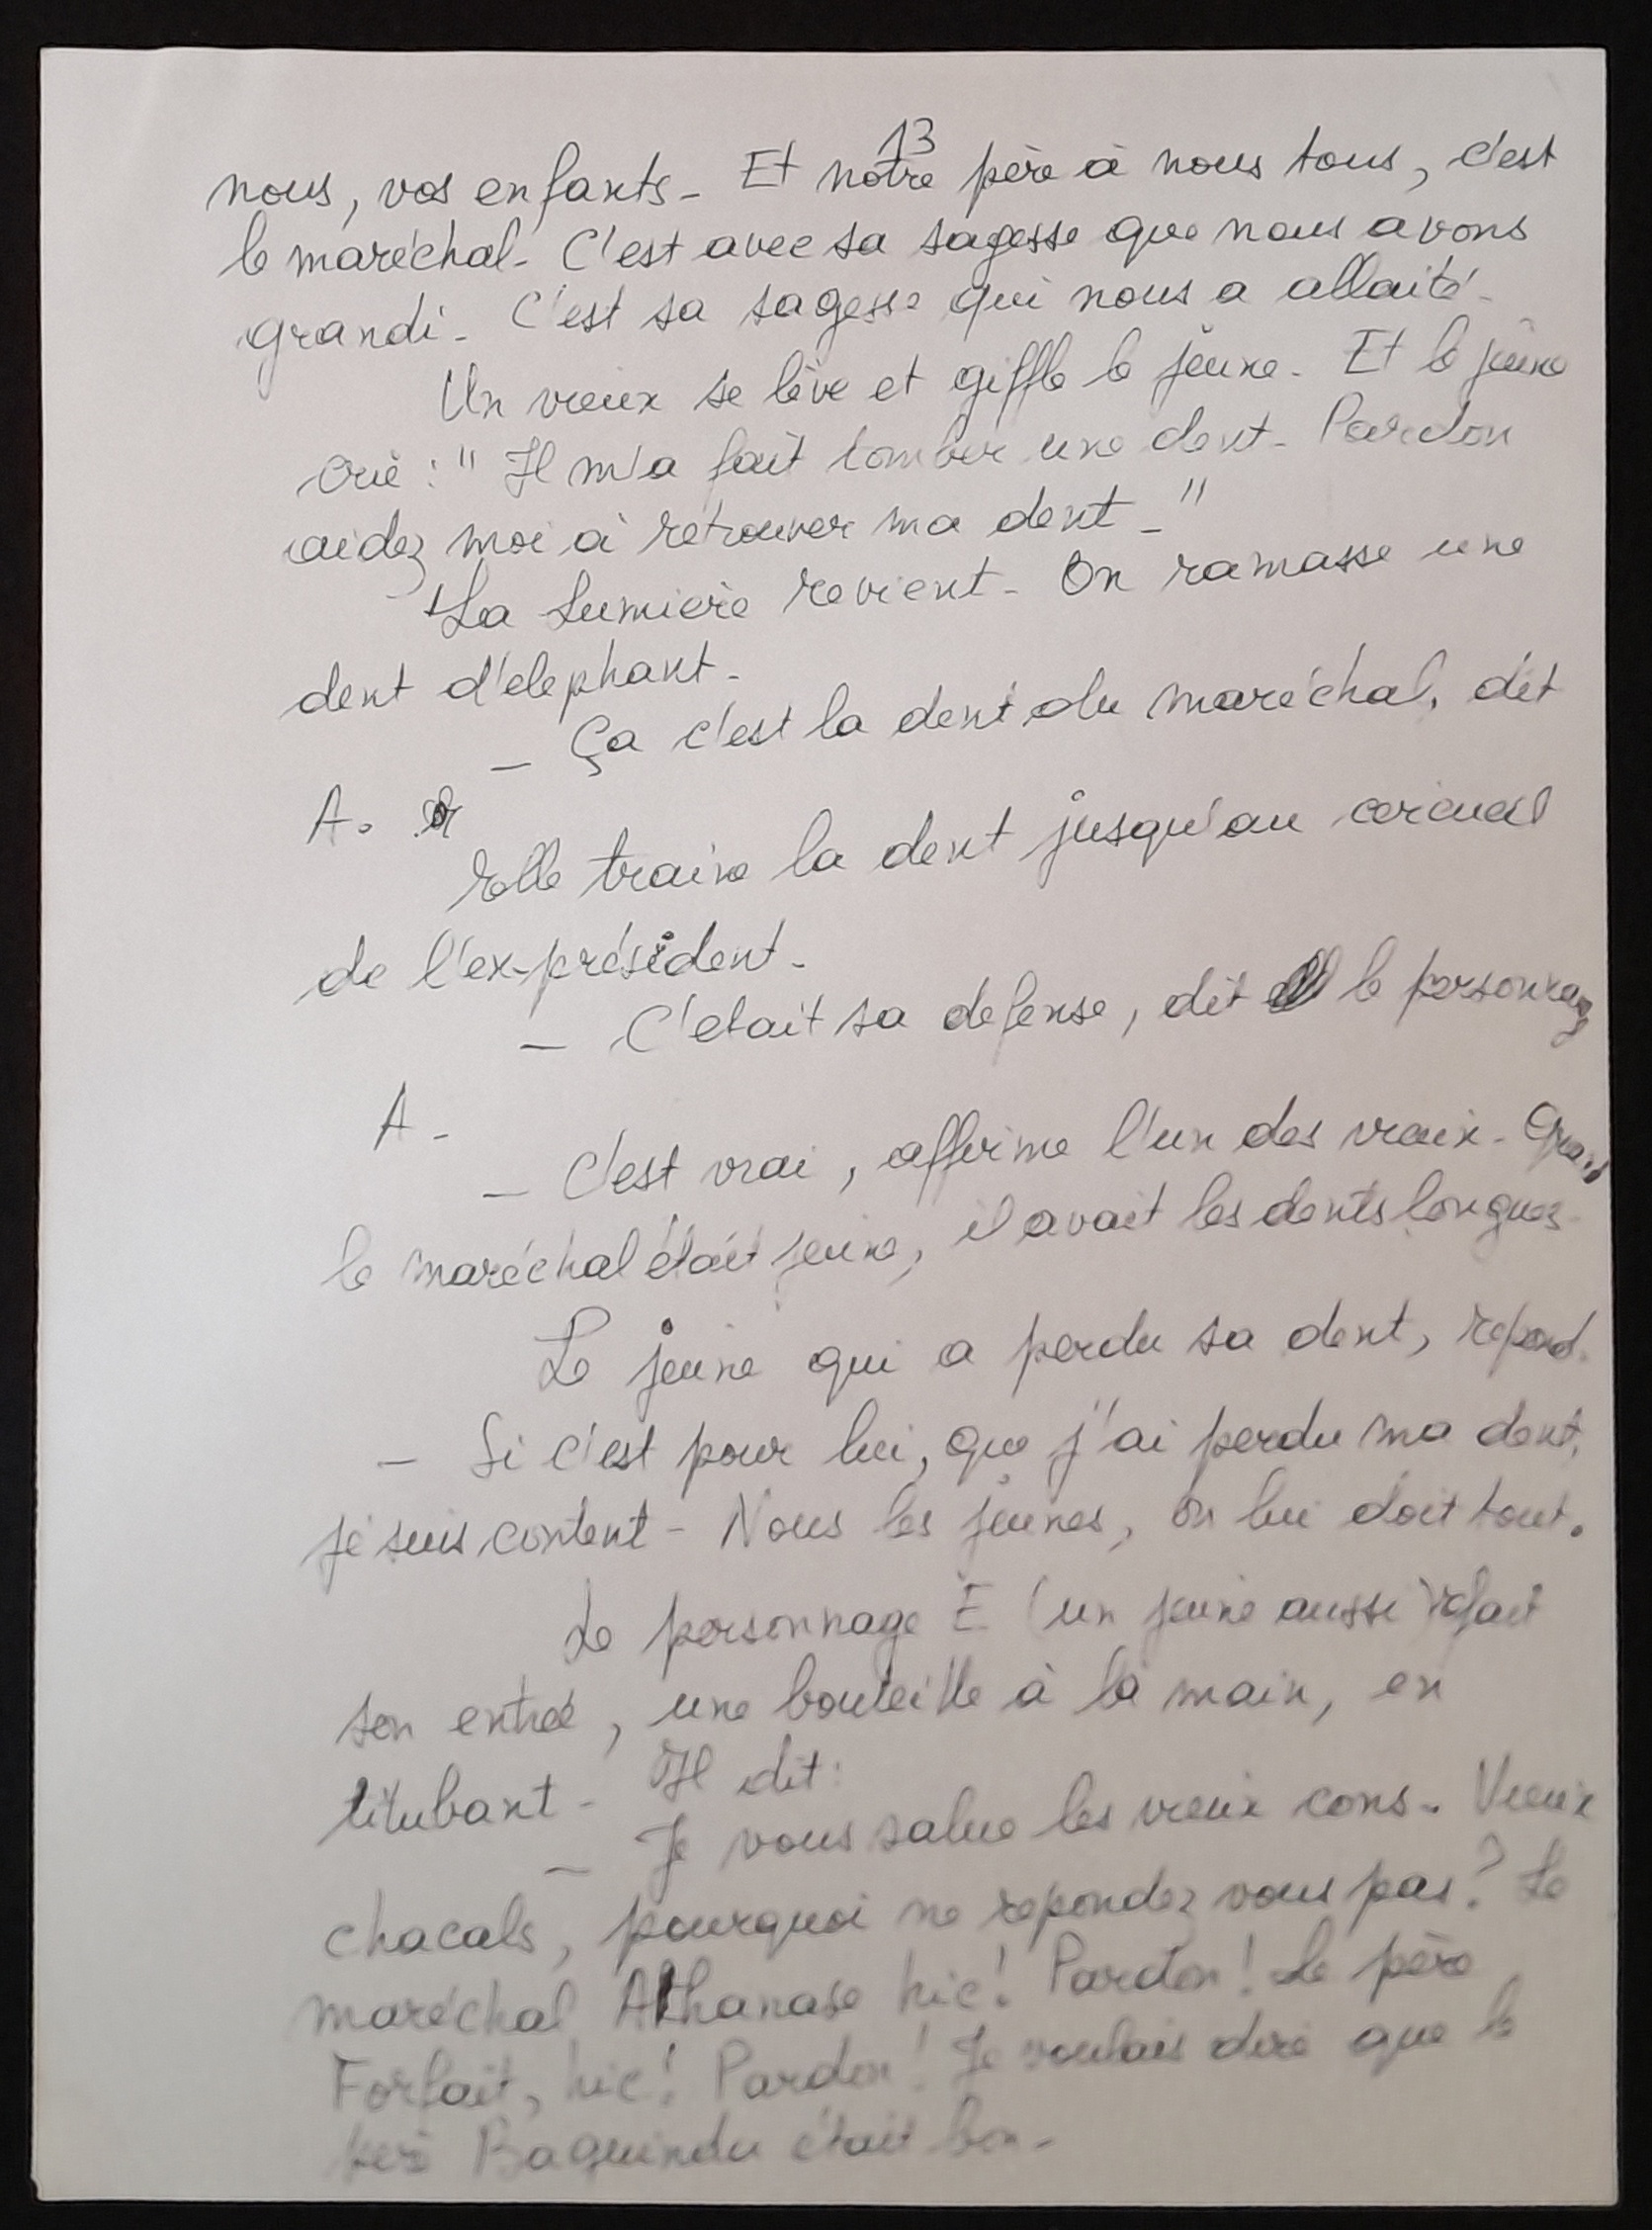 13
nous, vos enfants. Et notre père à nous tous, c'est
le maréchal. C'est avec sa sagesse que nous avons
grandi. C'est sa sagesse qui nous a allaité.
Un vieux se lève et giffle le jeune. Et le jeune
crie : " Il m'a fait tomber une dent. Pardon
aidez moi à retrouver ma dent. "
La lumière revient. On ramasse une
dent d'elephant.
- Ça c'est la dent du maréchal, dit
A.
Elle traine la dent jusqu'au cercueil
de l'ex-président.
- C'etait sa defense, dit le personnage
A.
- C'est vrai, affirme l'un des vieux. Quand
le maréchal était jeune, il avait les dents longues.
Le jeune qui a perdu sa dent, repond.
- Si c'est pour lui, que j'ai perdu ma dent,
je suis content. Nous les jeunes, on lui doit tout.
Le personnage E (un jeune aussi) refait
son entrée, une bouteille à la main, en
titubant. Il dit :
- Je vous salue les vieux cons. Vieux
chacals, pourquoi ne repondez vous pas ? Le
maréchal Athanase hic ! Pardon ! Le père
Forfait, hic ! Pardon ! Je voulais dire que le
père Baguindu était bon.